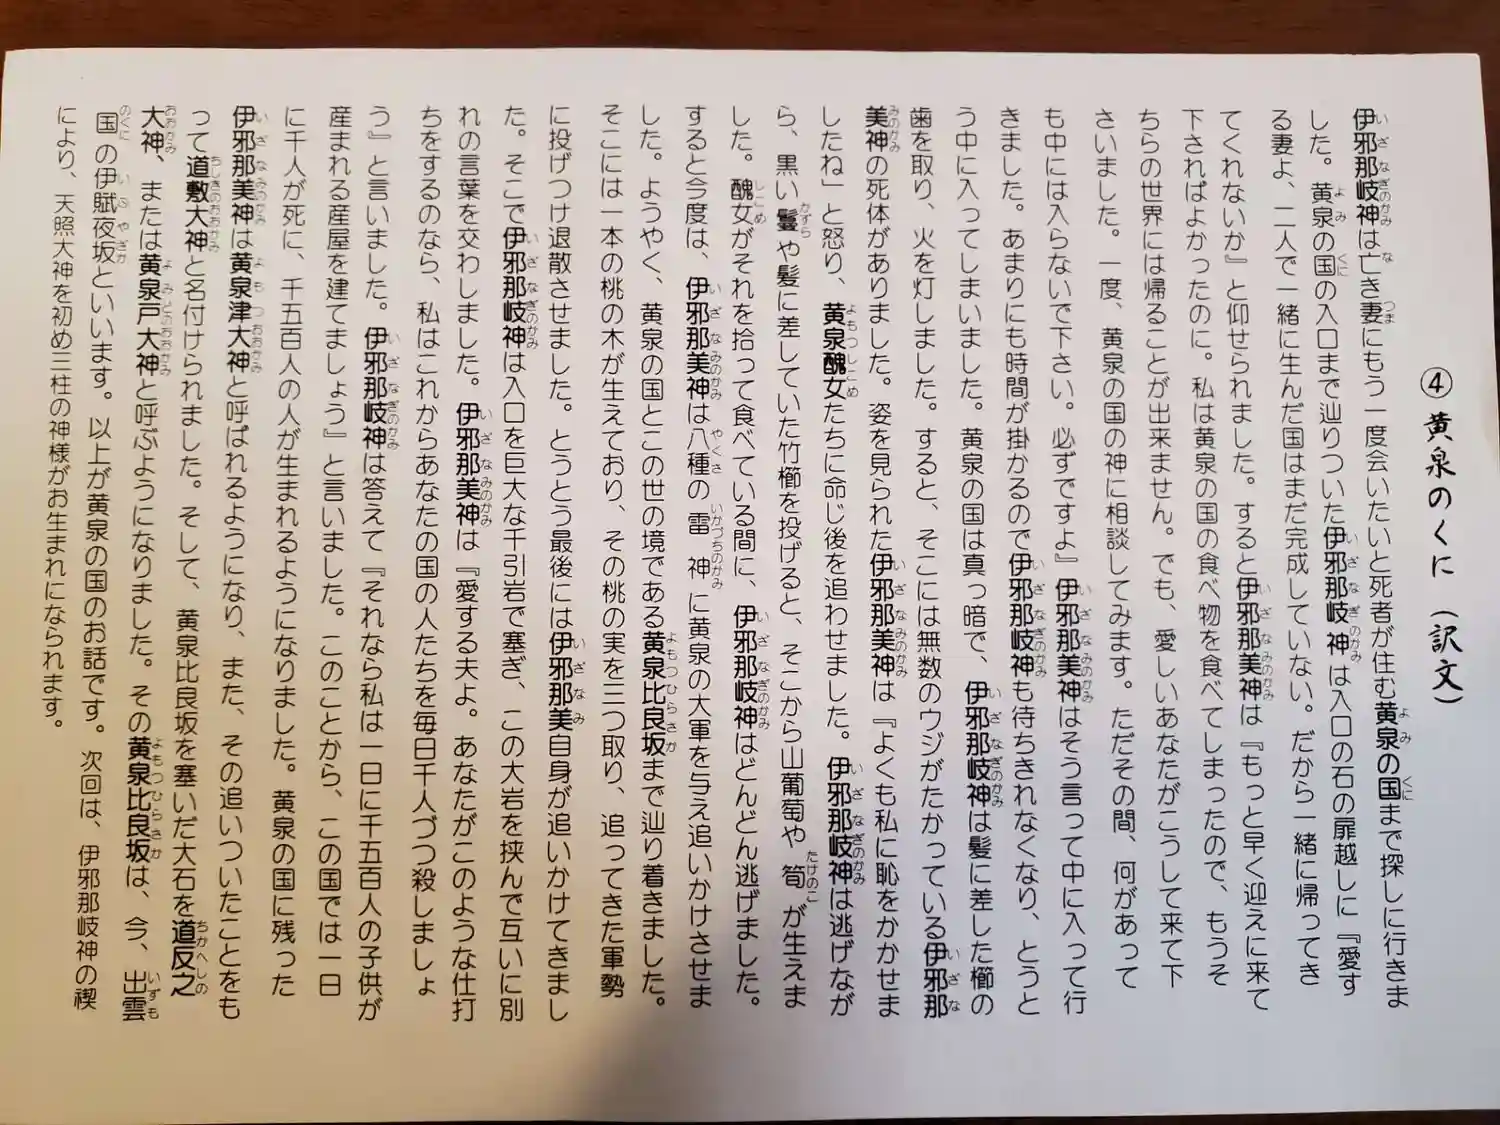 ④ 黄泉のくに（訳文）
伊邪那岐神は亡き妻にもう一度会いたいと死者が住む黄泉の国まで探しに行きま
した。黄泉の国の入口まで辿りついた伊邪那岐神は入口の石の扉越しに『愛す
る妻よ、二人で一緒に生んだ国はまだ完成していない。だから一緒に帰ってき
てくれないか』と仰せられました。すると伊邪那美神は『もっと早く迎えに来て
下さればよかったのに。私は黄泉の国の食べ物を食べてしまったので、もうそ
ちらの世界には帰ることが出来ません。でも、愛しいあなたがこうして来て下
さいました。一度、黄泉の国の神に相談してみます。ただその間、何があって
も中には入らないで下さい。必ずですよ』伊邪那美神はそう言って中に入って行
きました。あまりにも時間が掛かるので伊邪那岐神も待ちきれなくなり、とうと
う中に入ってしまいました。黄泉の国は真っ暗で、伊邪那岐神は髪に差した櫛の
歯を取り、火を灯しました。すると、そこには無数のウジがたかっている伊邪那
美神の死体がありました。姿を見られた伊邪那美神は『よくも私に恥をかかせま
したね」と怒り、黄泉醜女たちに命じ後を追わせました。伊邪那岐神は逃げなが
ら、黒い鬘や髪に差していた竹櫛を投げると、そこから山葡萄や筍が生えま
した。醜女がそれを拾って食べている間に、伊邪那岐神はどんどん逃げました。
すると今度は、伊邪那美神は八種の雷神に黄泉の大軍を与え追いかけさせま
した。ようやく、黄泉の国とこの世の境である黄泉比良坂まで辿り着きました。
そこには一本の桃の木が生えており、その桃の実を三つ取り、追ってきた軍勢
に投げつけ退散させました。とうとう最後には伊邪那美自身が追いかけてきまし
た。そこで伊邪那岐神は入口を巨大な千引岩で塞ぎ、この大岩を挟んで互いに別
れの言葉を交わしました。伊邪那美神は『愛する夫よ。あなたがこのような仕打
ちをするのなら、私はこれからあなたの国の人たちを毎日千人づつ殺しましょ
う』と言いました。伊邪那岐神は答えて『それなら私は一日に千五百人の子供が
産まれる産屋を建てましょう』と言いました。このことから、この国では一日
に千人が死に、千五百人の人が生まれるようになりました。黄泉の国に残った
伊邪那美神は黄泉津大神と呼ばれるようになり、また、その追いついたことをも
って道敷大神と名付けられました。そして、黄泉比良坂を塞いだ大石を道反之
大神、または黄泉戸大神と呼ぶようになりました。その黄泉比良坂は、今、出雲
国の伊賦夜坂といいます。以上が黄泉の国のお話です。次回は、伊邪那岐神の禊
により、天照大神を初め三柱の神様がお生まれになられます。